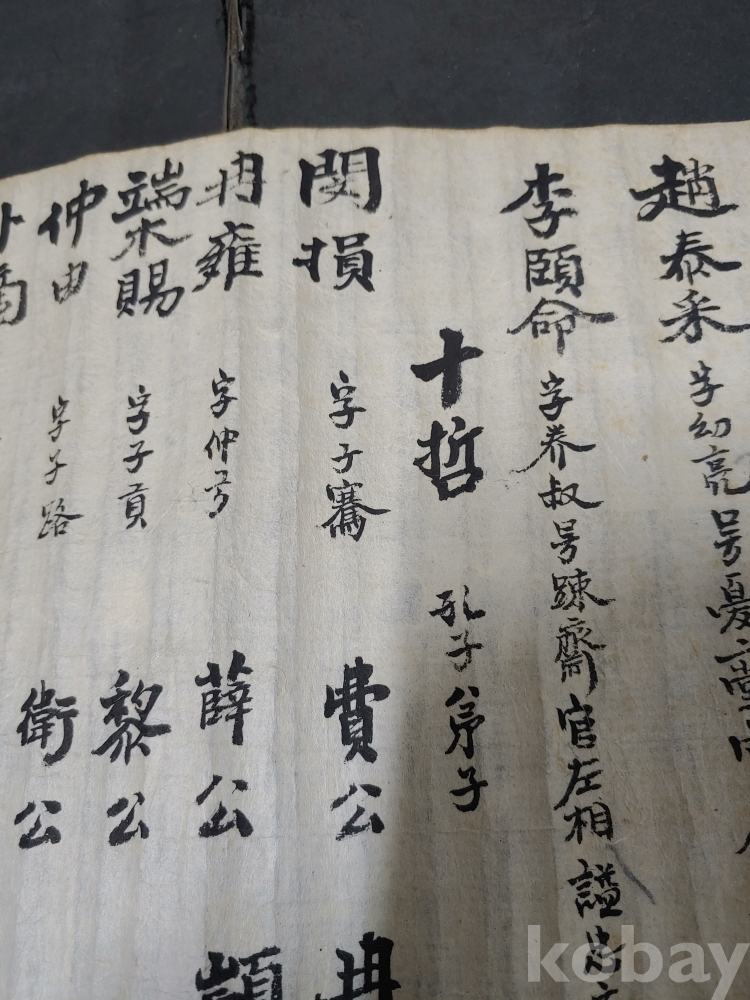 趙泰采 字幼亮号憂
李頤命 字养叔号踈齋官左相謚忠
十哲 孔子弟子
閔損 字子騫 費公 冉
冉雍 字仲弓 薛公 顓
端木賜 字子貢 黎公
仲由 字子路 衛公
卜商
kobay